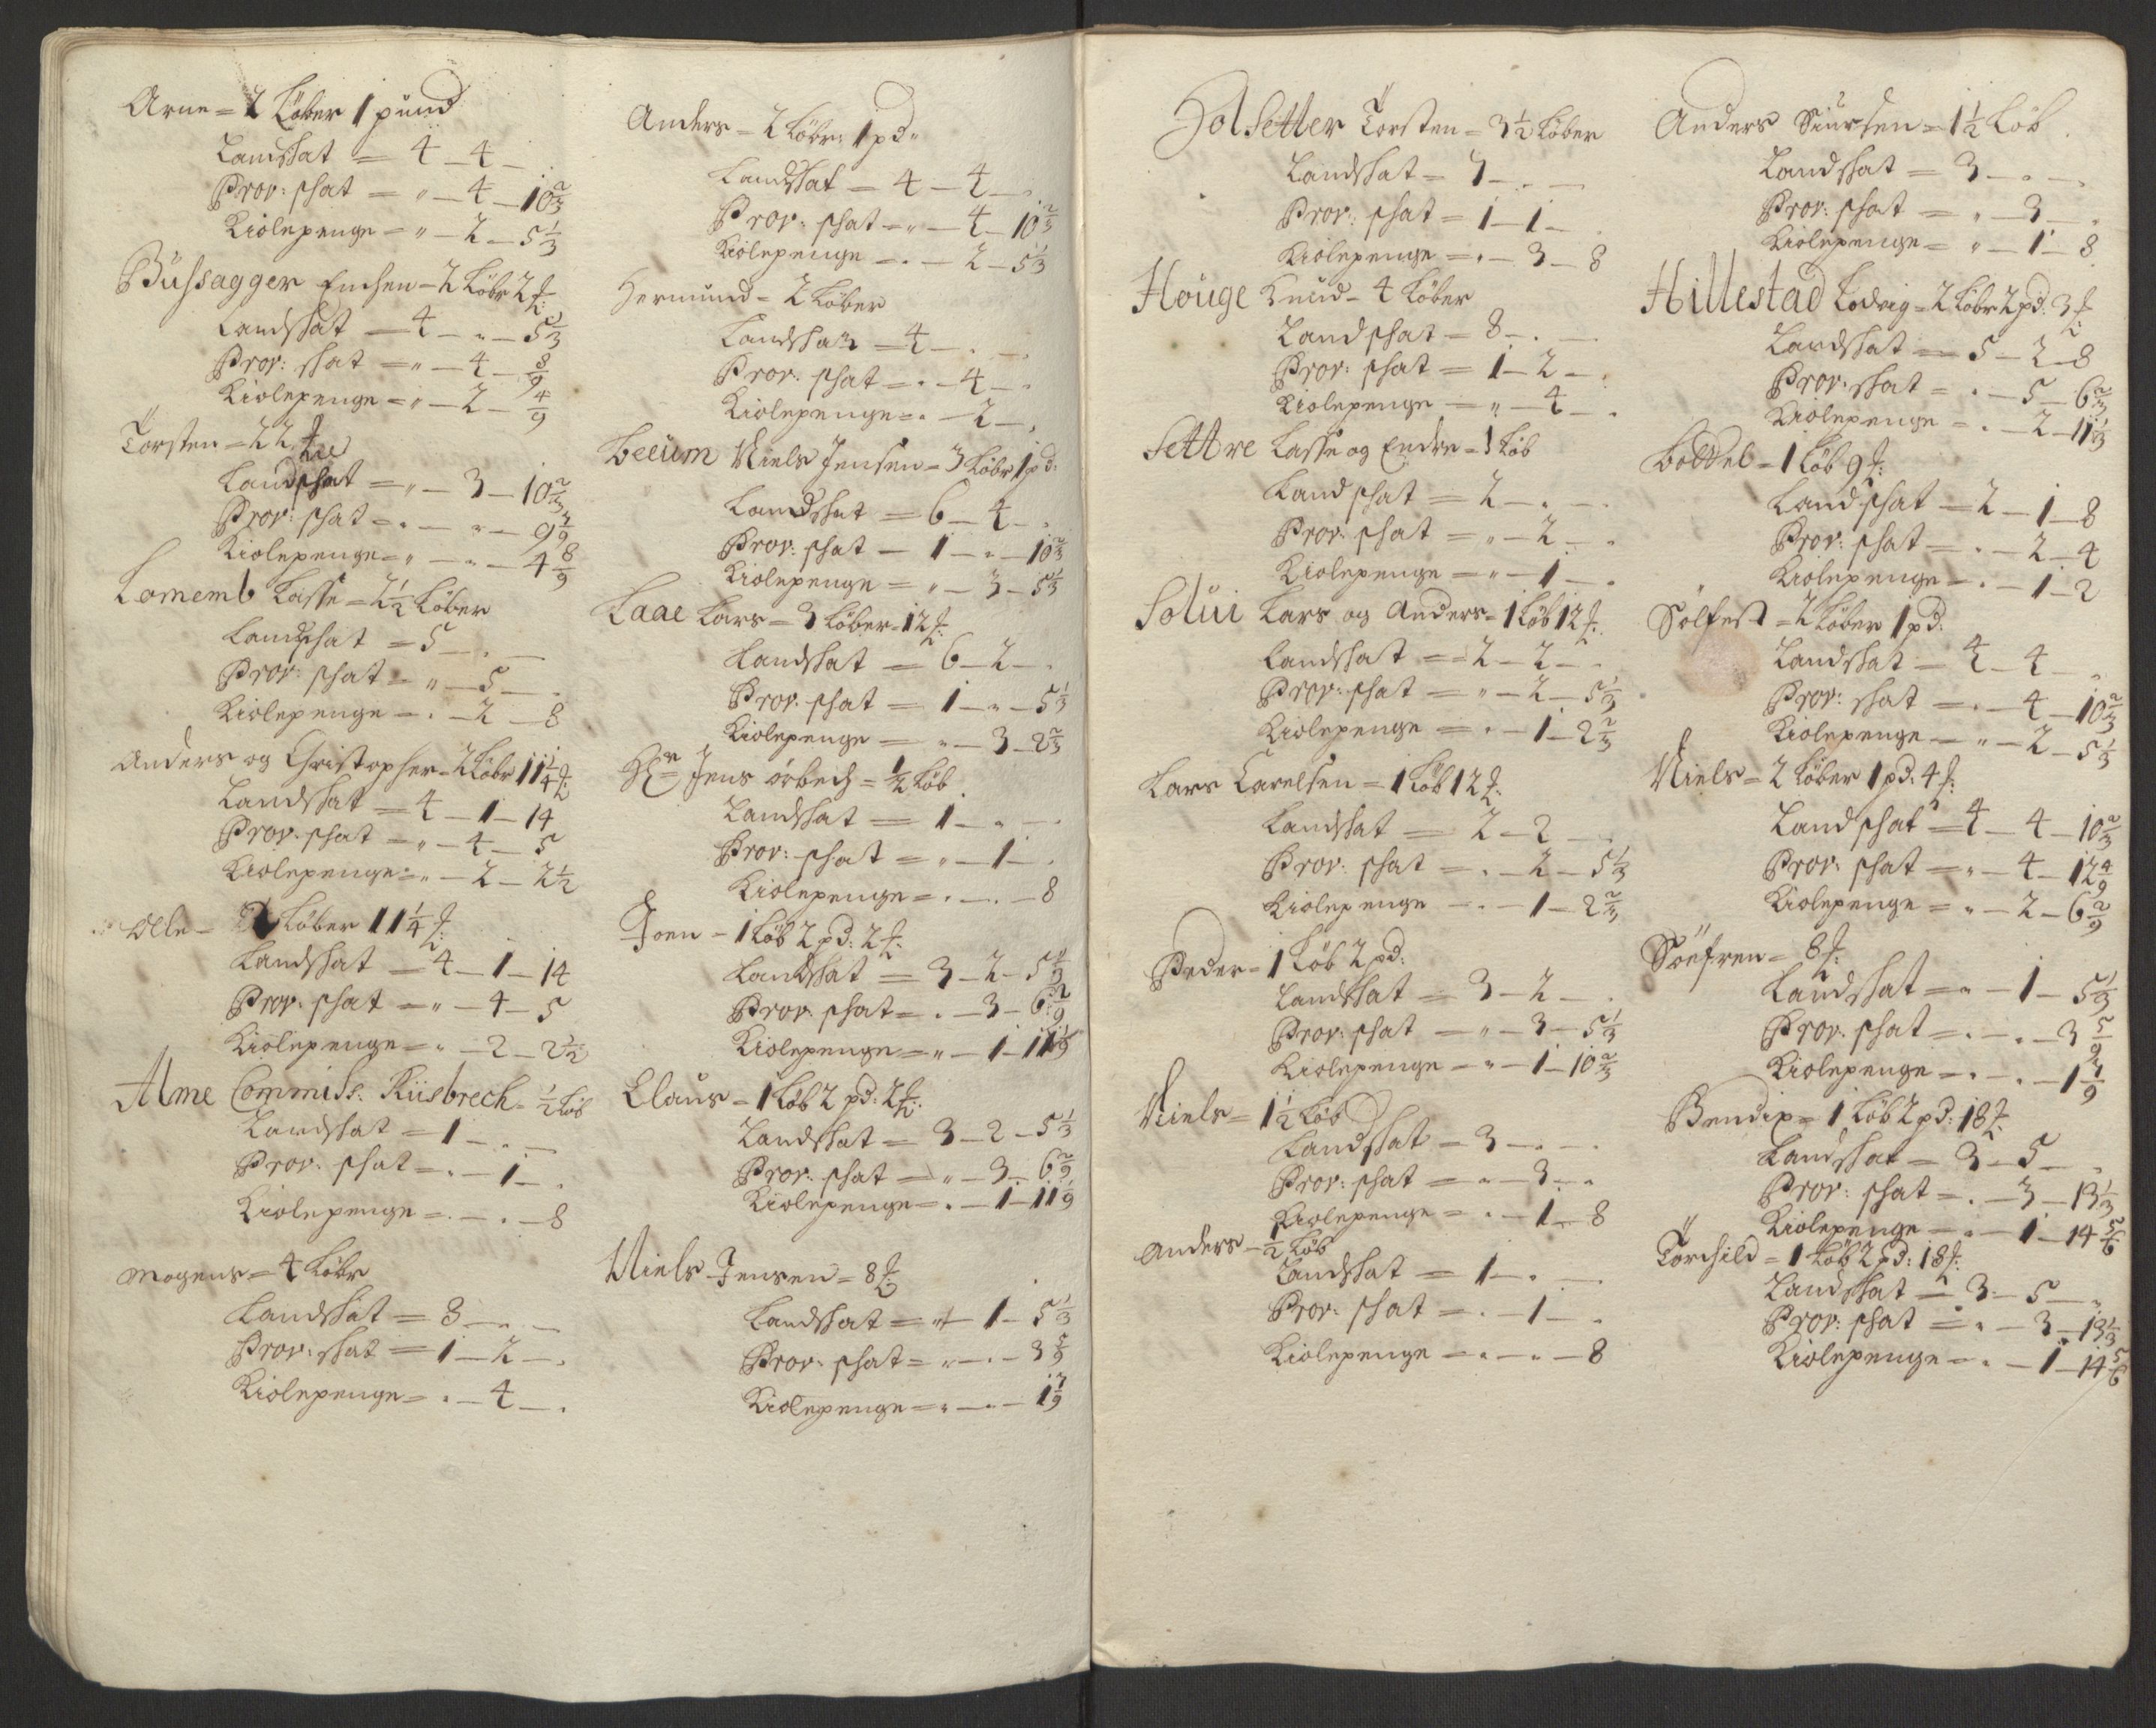 Arne = 2 Løber 1 pund
Landskat = 4 - 4 -
Prov: skat = „ - 4 - 10 2/3
Kiolepenge = „ - 2 - 5 1/3
Büssagger Enchen = 2 Løbr 2 ℔:
Landskat = 4 - „ - 5 1/3
Prov: skat = „ - 4 - 8/9
Kiolepenge = „ - 2 - 4/9
Torsten = 22 ℔
Landskat = „ - 3 - 10 2/3
Prov: skat = „ - „ - 9 7/9
Kiolepenge = „ - „ - 4 8/9
Lomemb Lasse = 2 1/2 Løber
Landskat = 5 - . -
Prov: skat = „ - 5 - .
Kiolepenge = . - 2 - 8
Anders og Christopher = 2 Løbr 11 1/4 ℔
Landskat = 4 - 1 - 14
Prov: skat = „ - 4 - 5
Kiolepenge = „ - 2 - 2 1/2
Olle = 2 Løber 11 1/4 ℔:
Landskat = 4 - 1 - 14
Prov: skat = „ - 4 - 5
Kiolepenge = „ - 2 - 2 1/2
Alme Commiss: Riisbrech = 1/2 Løb
Landskat = 1 - . -
Prov: skat = . - 1 - .
Kiolepenge = . - . - 8
Mogens = 4 Løbr
Landskat = 8 - „ -
Prov: skat = 1 - 2 - .
Kiolepenge = . - 4 - .
Anders = 2 Løbr: 1 pd „
Landskat = 4 - 4 - .
Prov: skat = „ - 4 - 10 2/3
Kiolepenge = . - 2 - 5 1/3
Hermund = 2 Løber
Landskat = 4 - . -
Prov: skat = . - 4 - .
Kiolepenge = . - 2 - .
Leeüm Niels Jensen = 3 Løbr 1 pd:
Landskat = 6 - 4 - .
Prov: skat = 1 - „ - 10 2/3
Kiolepenge = „ - 3 - 5 1/3
Laae Lars = 3 Løber = 12 ℔:
Landskat = 6 - 2 - .
Prov: skat = 1 - „ - 5 1/3
Kiolepenge = „ - 3 - 2 2/3
Hr Jens örbech = 1/2 Løb
Landskat = 1 - „ -
Prov: skat = „ - 1 - .
Kiolepenge = . - . - 8
Joen = 1 Løb 2 pd: 2 ℔:
Landskat = 3 - 2 - 5 1/3
Prov: skat = . - 3 - 6 2/9
Kiolepenge = „ - 1 - 11 1/9
Claus = 1 Løb 2 pd: 2 ℔:
Landskat = 3 - 2 - 5 1/3
Prov: skat = „ - 3 - 6 2/9
Kiolepenge = . - 1 - 11 1/9
Niels Jensen = 8 ℔
Landskat = „ - 1 - 5 1/3
Prov: skat = „ - . - 3 5/9
Kiolepenge = „ - . - 1 7/9
Holsetter Torsten = 3 1/2 Løber
Landskat = 7 - . -
Prov: skat = 1 - 1 - .
Kiolepenge = „ - 3 - 8
Houge Knud = 4 Løber
Landskat = 8 - . -
Prov: skat = 1 - 2 - .
Kiolepenge = „ - 4 - .
Settre Lasse og Endre = 1 Løb
Landskat = 2 - . - .
Prov: skat = „ - 2 - .
Kiolepenge = „ - 1 - .
Solui Lars og Anders = 1 Løb 12 ℔:
Landskat = 2 - 2 - .
Prov: skat = „ - 2 - 5 1/3
Kiolepenge = . - 1 - 2 2/3
Lars Carelsen = 1 Løb 12 ℔:
Landskat = 2 - 2 - .
Prov: skat = . - 2 - 5 1/3
Kiolepenge = . - 1 - 2 2/3
Peder = 1 Løb 2 pd:
Landskat = 3 - 2 - .
Prov: skat = „ - 3 - 5 1/3
Kiolepenge = „ - 1 - 10 2/3
Niels = 1 1/2 Løb
Landskat = 3 - . - .
Prov: skat = „ - 3 - „
Kiolepenge = . - 1 - 8
Anders = 1/2 Løb
Landskat = 1 - . - .
Prov: skat = . - 1 - .
Kiolepenge = . - „ - 8
Anders Siursen = 1 1/2 Løb
Landskat = 3 - . - .
Prov: skat = „ - 3 - .
Kiolepenge = „ - 1 - 8
Hillestad Lodvig = 2 Løbr 2 pd: 3 ℔
Landskat = 5 - 2 - 8
Prov: skat = . - 5 - 6 2/3
Kiolepenge = . - 2 - 11 1/3
Boldel = 1 Løb 9 ℔:
Landskat = 2 - 1 - 8
Prov: skat = . - 2 - 4
Kiolepenge = . - 1 - 2
Solfest = 2 Løber 1 pd:
Landskat = 4 - 4 - .
Prov: skat = . - 4 - 10 2/3
Kiolepenge = „ - 2 - 5 1/3
Niels = 2 Løber 1 pd: 4 ℔:
Landskat = 4 - 4 - 10 2/3
Prov: skat = „ - 4 - 12 4/9
Kiolepenge = „ - 2 - 6 2/9
Söefren = 8 ℔:
Landskat = „ - 1 - 5 1/3
Prov: skat = . - „ - 3 5/9
Kiolepenge = . - . - 1 7/9
Bendix = 1 Løb 2 pd: 18 ℔:
Landskat = 3 - 5 - .
Prov: skat = . - 3 - 13 1/3
Kiolepenge = . - 1 - 14 5/6
Torchild = 1 Løb 2 pd: 18 ℔:
Landskat = 3 - 5 - .
Prov: skat = . - 3 - 13 1/3
Kiolepenge = . - 1 - 14 5/6